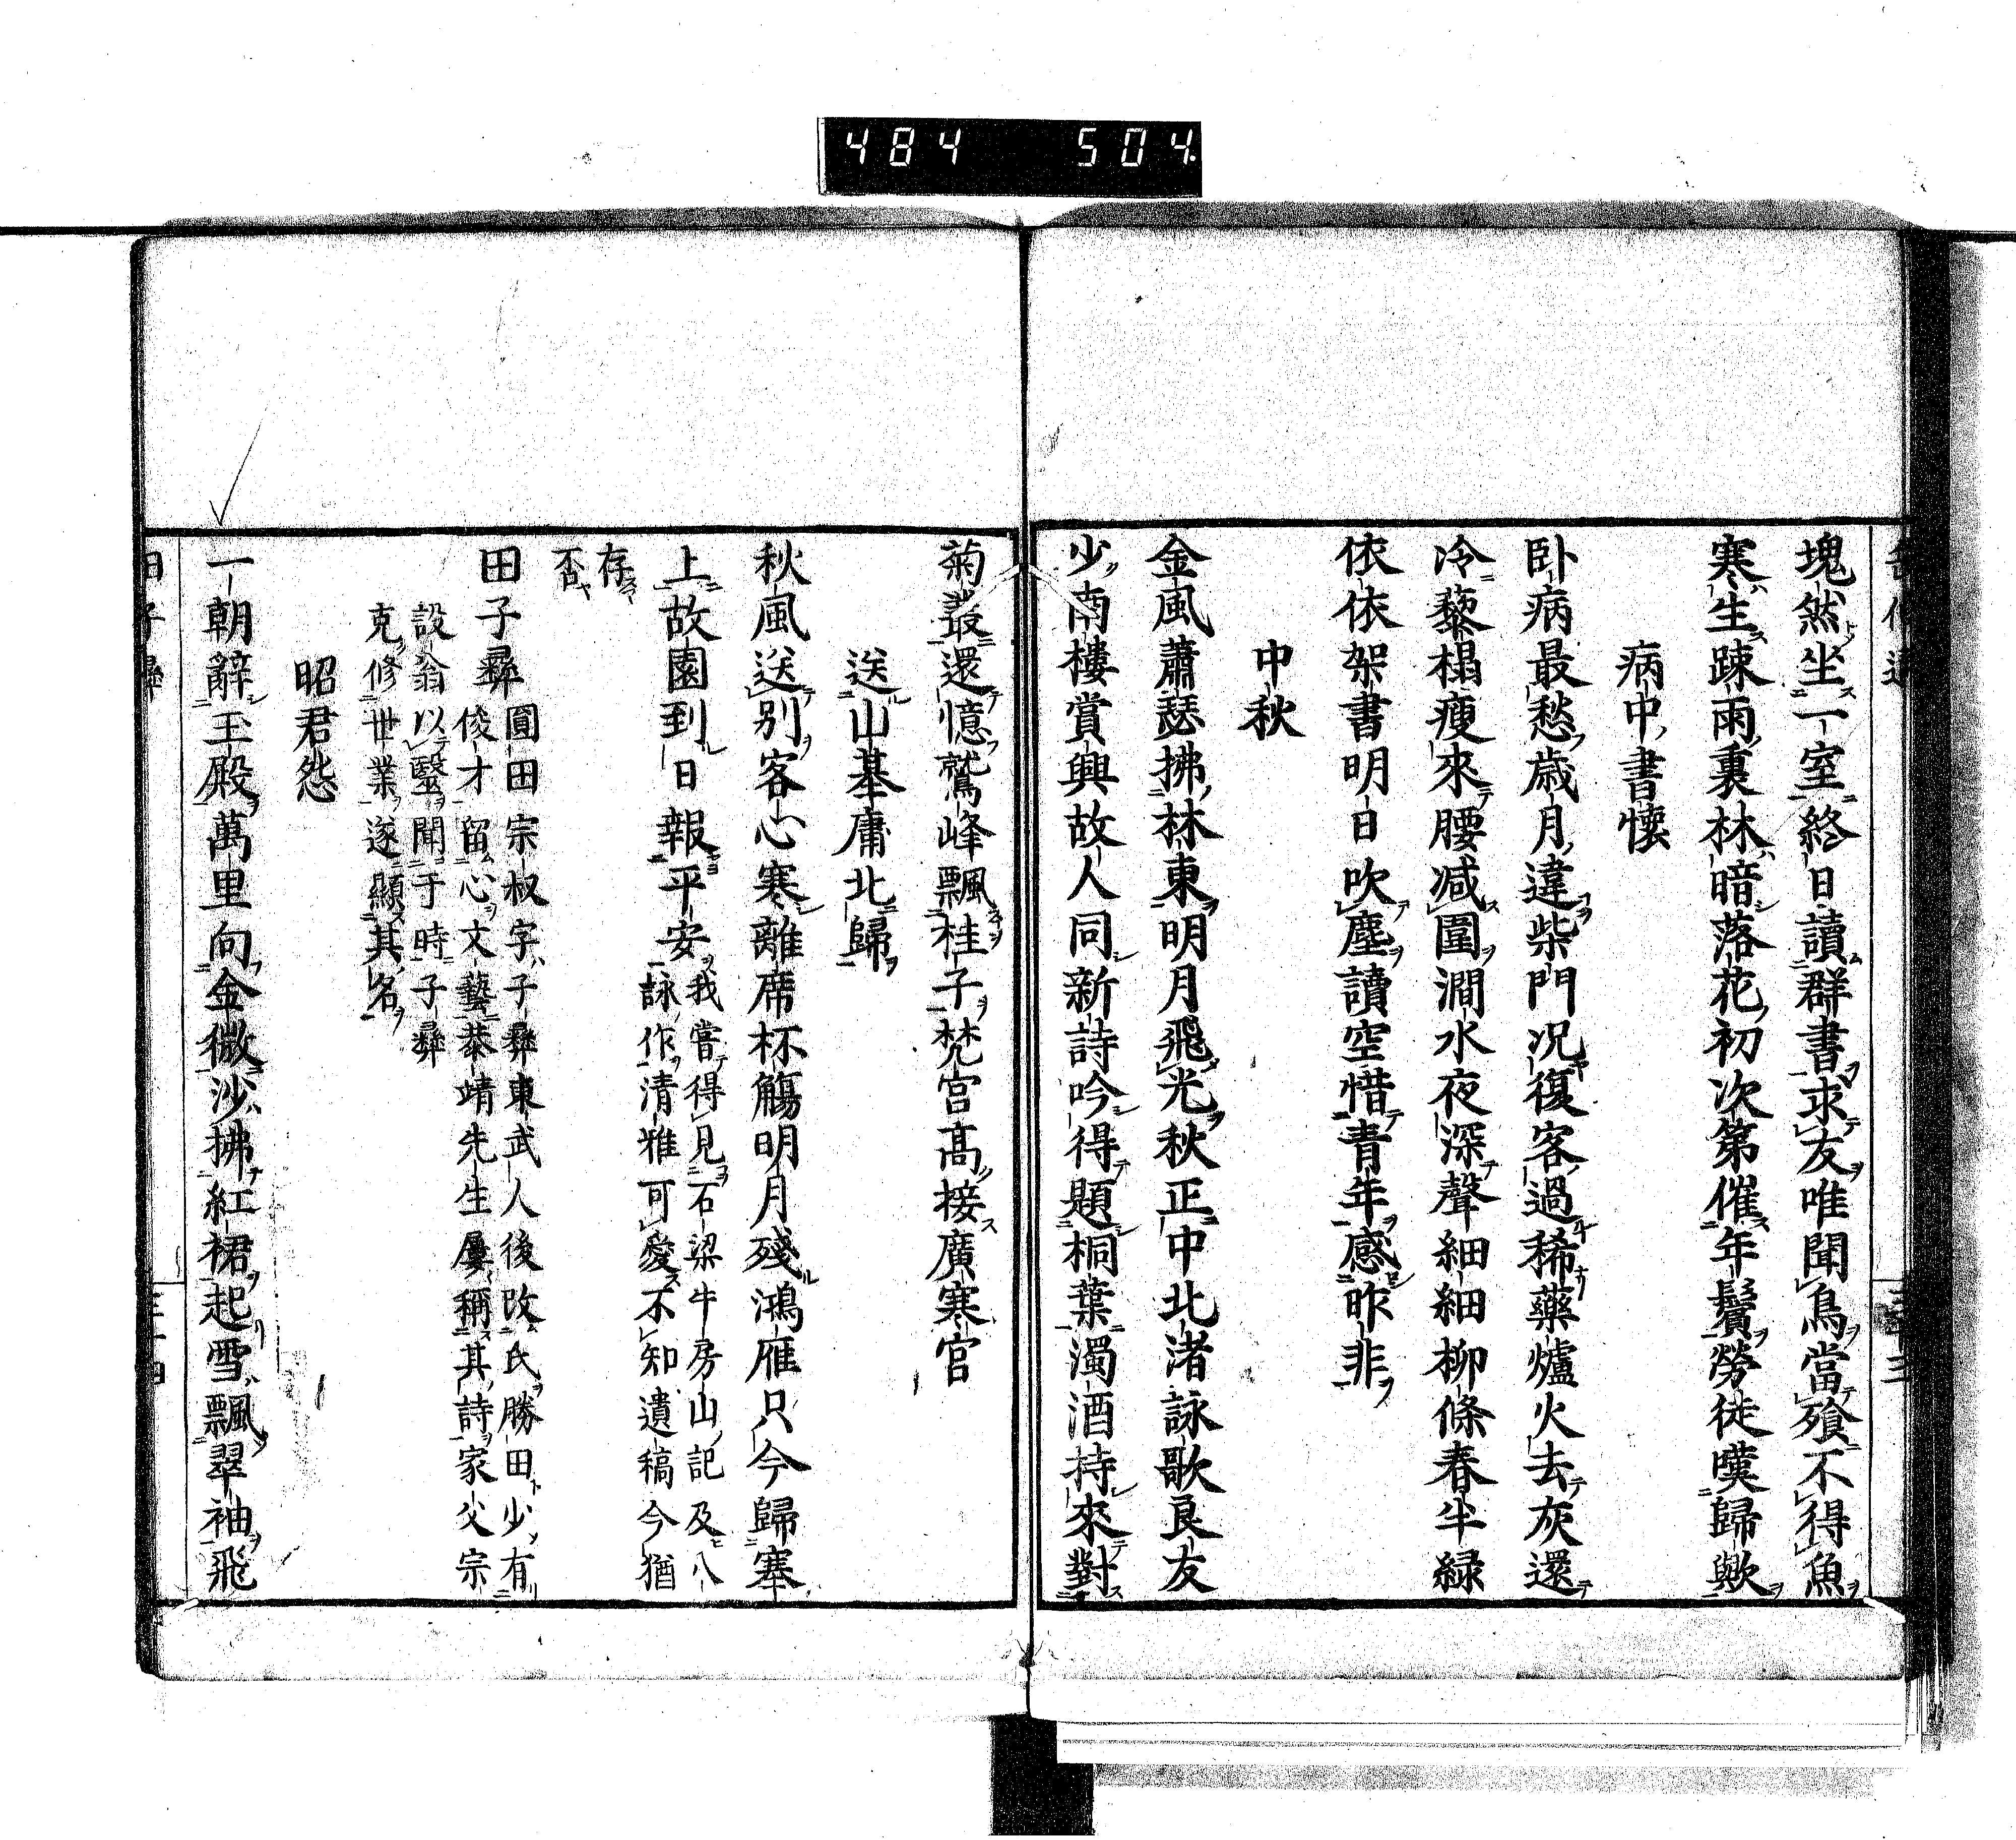 484 504
塊然坐一室終日讀群書求友唯聞鳥當飱不得魚
寒生踈雨裏林暗落花初次第催年鬢勞徒嘆歸歟
病中書懷
卧病最愁歳月違柴門况復客過稀藥爐火去灰還
冷藜榻瘦來腰减圍澗水夜深聲細細柳條春半緑
依依架書明日吹塵讀空惜青年感昨非
中秋
金風蕭瑟拂林東明月飛光秋正中北渚詠歌良友
少南樓賞興故人同新詩吟得題桐葉濁酒持來對
菊叢還憶鷲峰飄桂子梵宮高接廣寒宮
送山基庸北歸
秋風送別客心寒離席杯觴明月殘鴻雁只今歸塞
上故園到日報平安
我嘗得見石梁牛房山記及八
詠作清雅可愛不知遺稿今猶
存
否
田子彛
圓田宗叔字子彛東武人後改氏勝田少有
俊才留心文藝恭靖先生屢稱其詩家父宗
設翁以醫聞于時子彛
克修世業遂顯其名
昭君怨
一朝辭玉殿萬里向金微沙拂紅裙起雪飄翠袖飛
田子彛